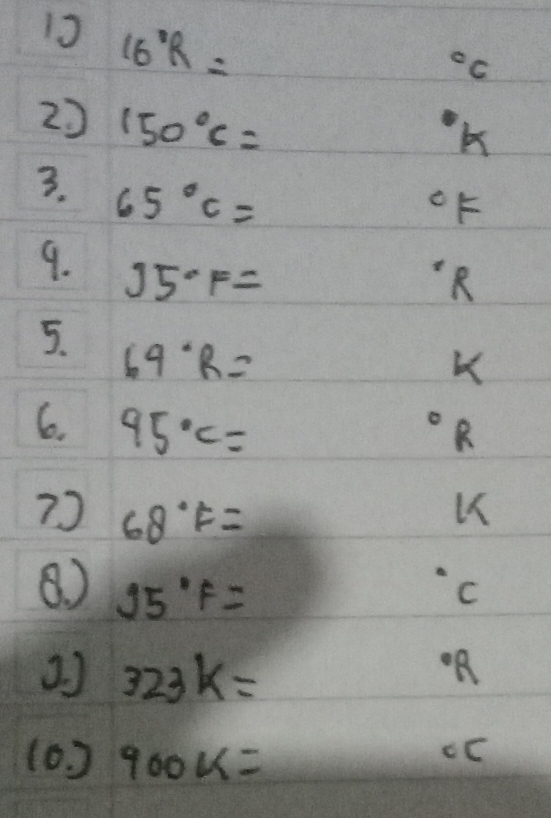 1.) 16°R = °C
2.) 150°C = °K
3. 65°C = °F
4. 95°F = °R
5. 64°R = K
6. 45°C = °R
7.) 68°F = K
8.) 95°F = °C
9.) 323K = °R
10.) 400K = °C